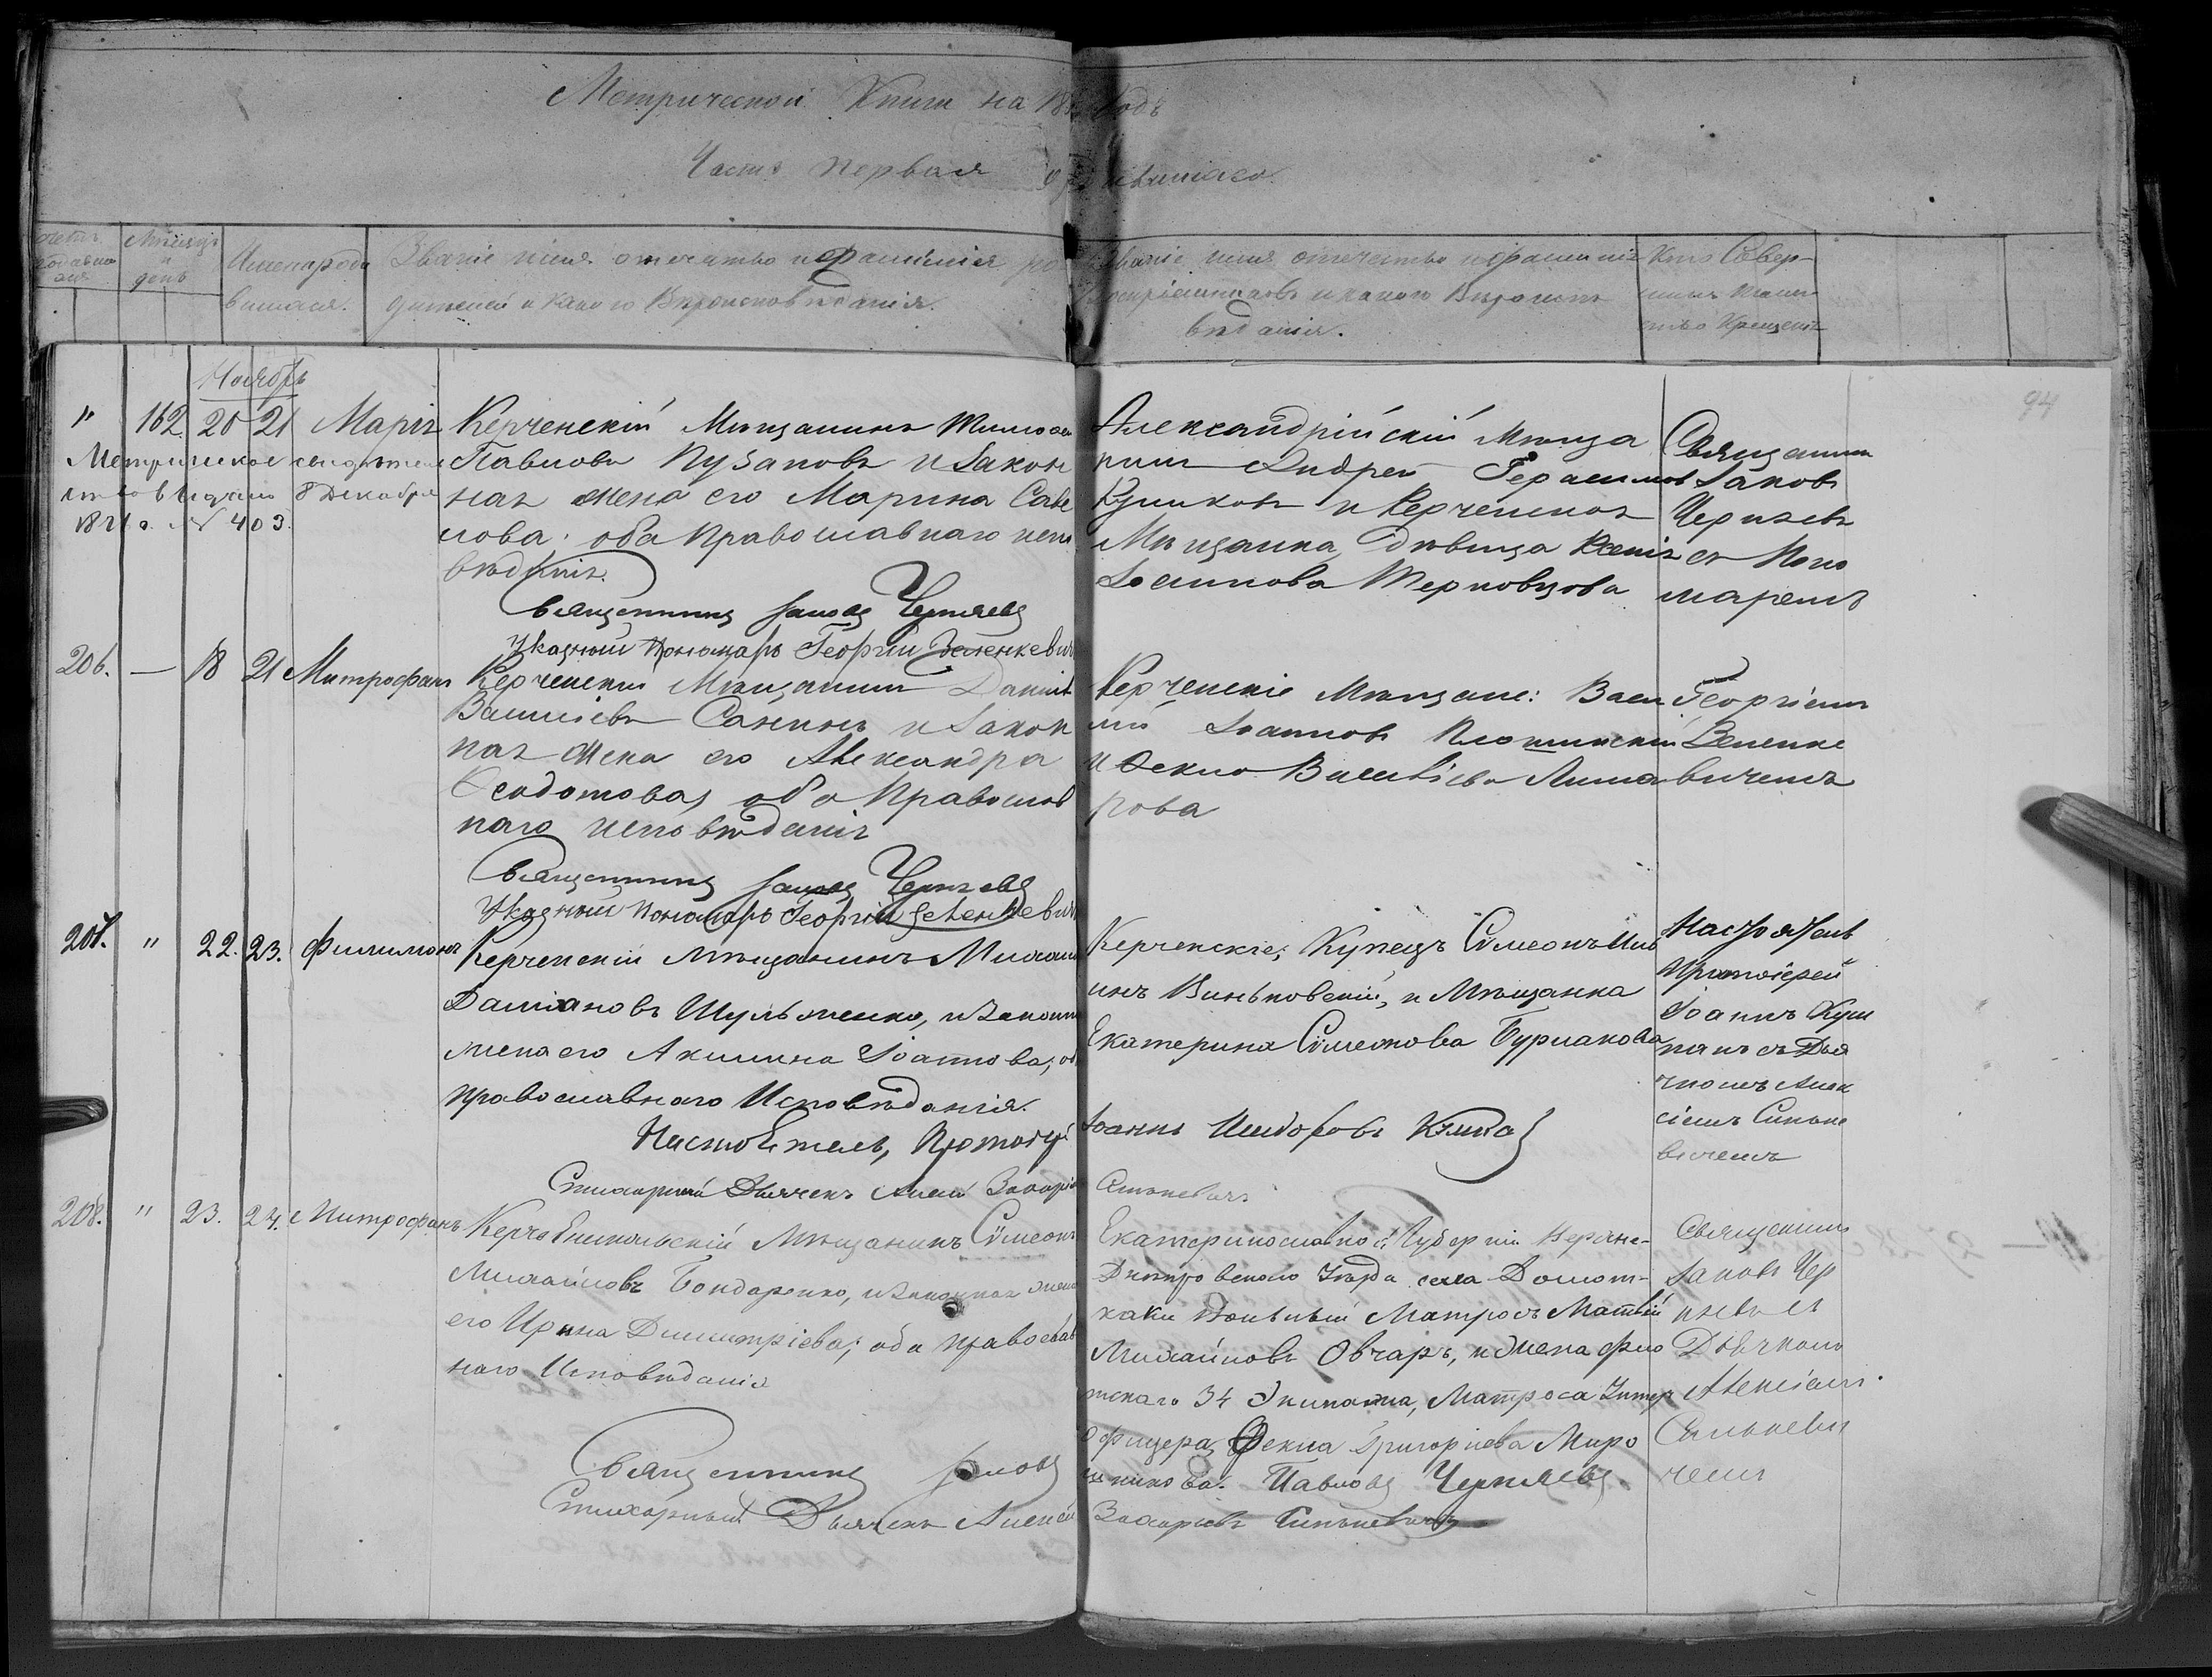 Метрической Книги на 18 годъ
Часть первая о родившихся
Счетъ родившихся
Мѣсяцъ и день
Имена родившихся.
Званіе имя отечество и фамилія родителей и какого Вѣроисповѣданія.
Званіе имя отечество и фамилія воспріемниковъ и какого Вѣроисповѣданія.
Кто Совершилъ таинство Крещенія
94
Ноябрь
" 162. 20 21 Марія
Метрическое свидѣтель
ство выдано 8 Декабря
№ 403.
Керченскій Мѣщанинъ
Павловъ Пузановъ и закон
ная жена его Марина Саве
лова. оба Православнаго испо
вѣданія.
Священникъ Іаковъ Черняевъ
Указный Пономарь Георгій Зеленкевичъ
Александрійскій Мѣща
нинъ Андрей Герасимовъ
Куликовъ и Керченская
Мѣщанка, Дѣвица Ксенія
Іоаннова Терновцова
Священникъ
Іаковъ
Черняевъ
съ Поно
маремъ
206. — 18 21 Митрофанъ
Керченскій Мѣщанинъ Даніилъ
Васильевъ Санинъ и закон
ная жена его Александра
Ѳеодотова, оба Православ
наго исповѣданія
Священникъ Іаковъ Черняевъ
Указный Пономарь Георгій Зеленкевичъ
Керченскіе Мѣщане: Васи
лій Іоанновъ
и Ѳекла Васильева
рова
Георгіемъ
Зеленке
вичемъ
207. " 22. 23. Филимонъ
Керченскій мѣщанинъ Михаилъ
Даміановъ Шульженко, и законная
жена его Акилина Іоаннова, оба
православнаго Исповѣданія.
Настоятель, Протоіерей
Іоаннъ Исидоровъ
Стихарный Дьячекъ Алексій Захаріевъ
Синькевичъ
Керченскіе, Купецъ Сѵмеонъ
Виньковскій, и Мѣщанка
Екатерина Сѵмеонова Бурлакова
Настоятель
Протоіерей
Іоаннъ
съ Дья
чкомъ Алек
сіемъ Синьке
вичемъ
208. " 23. 24. Митрофанъ
Керчь Еникольскій Мѣщанинъ Сѵмеонъ
Михайловъ Бондаренко, и законная жена
его Ирина Димитріева; оба православ
наго Исповѣданія
Екатеринославской Губерніи Верхне-
Днѣпровскаго Уѣзда села Домот-
кани Вольный Матросъ Матвѣй
Михайловъ Овчаръ, и жена фло
тскаго 34 Экипажа, Матроса Унтеръ
Офицера, Ѳекла Григоріева Миро
шникова.
Священникъ Іаковъ Павловъ Черняевъ
Стихарный Дьячекъ Алексѣй Захаріевъ Синькевичъ
Священникъ
Іаковъ Чер
няевъ съ
Дьячкомъ
Алексіемъ
Синькеви
чемъ